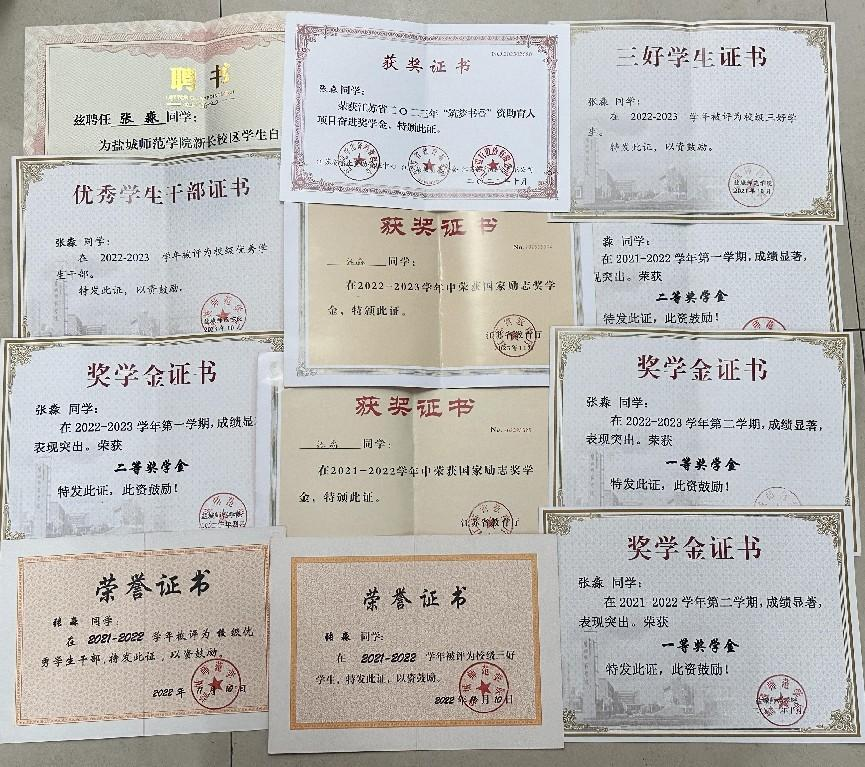 聘书
兹聘任 张淼 同学：
为盐城师范学院新长校区学生自
获奖证书
张淼同学：
荣获江苏省二〇二三年“筑梦书香”资助育人
项目奋进奖学金，特颁此证。
三好学生证书
张淼 同学：
在 2022-2023 学年被评为校级三好学
生。
特发此证，以资鼓励。
盐城师范学院
2023年10月
优秀学生干部证书
张淼 同学：
在 2022-2023 学年被评为校级优秀学
生干部。
特发此证，以资鼓励。
盐城师范学院
2023年10月
获奖证书
同学：
在2022-2023学年中荣获国家励志奖学
金，特颁此证。
江苏省教育厅
淼 同学：
在2021-2022学年第一学期，成绩显著，
现突出。荣获
二等奖学金
特发此证，此资鼓励！
奖学金证书
张淼 同学：
在2022-2023学年第一学期，成绩显
表现突出。荣获
二等奖学金
特发此证，此资鼓励！
获奖证书
同学：
在2021-2022学年中荣获国家励志奖学
金，特颁此证。
江苏省教育厅
奖学金证书
张淼 同学：
在2022-2023学年第二学期，成绩显著，
表现突出。荣获
一等奖学金
特发此证，此资鼓励！
荣誉证书
张淼 同学：
在 2021-2022 学年被评为 校级优
秀学生干部，特发此证，以资鼓励。
2022年 月10日
荣誉证书
张淼 同学：
在 2021-2022 学年被评为校级三好
学生，特发此证，以资鼓励。
2022年 月10日
奖学金证书
张淼 同学：
在2021-2022学年第二学期，成绩显著，
表现突出。荣获
一等奖学金
特发此证，此资鼓励！